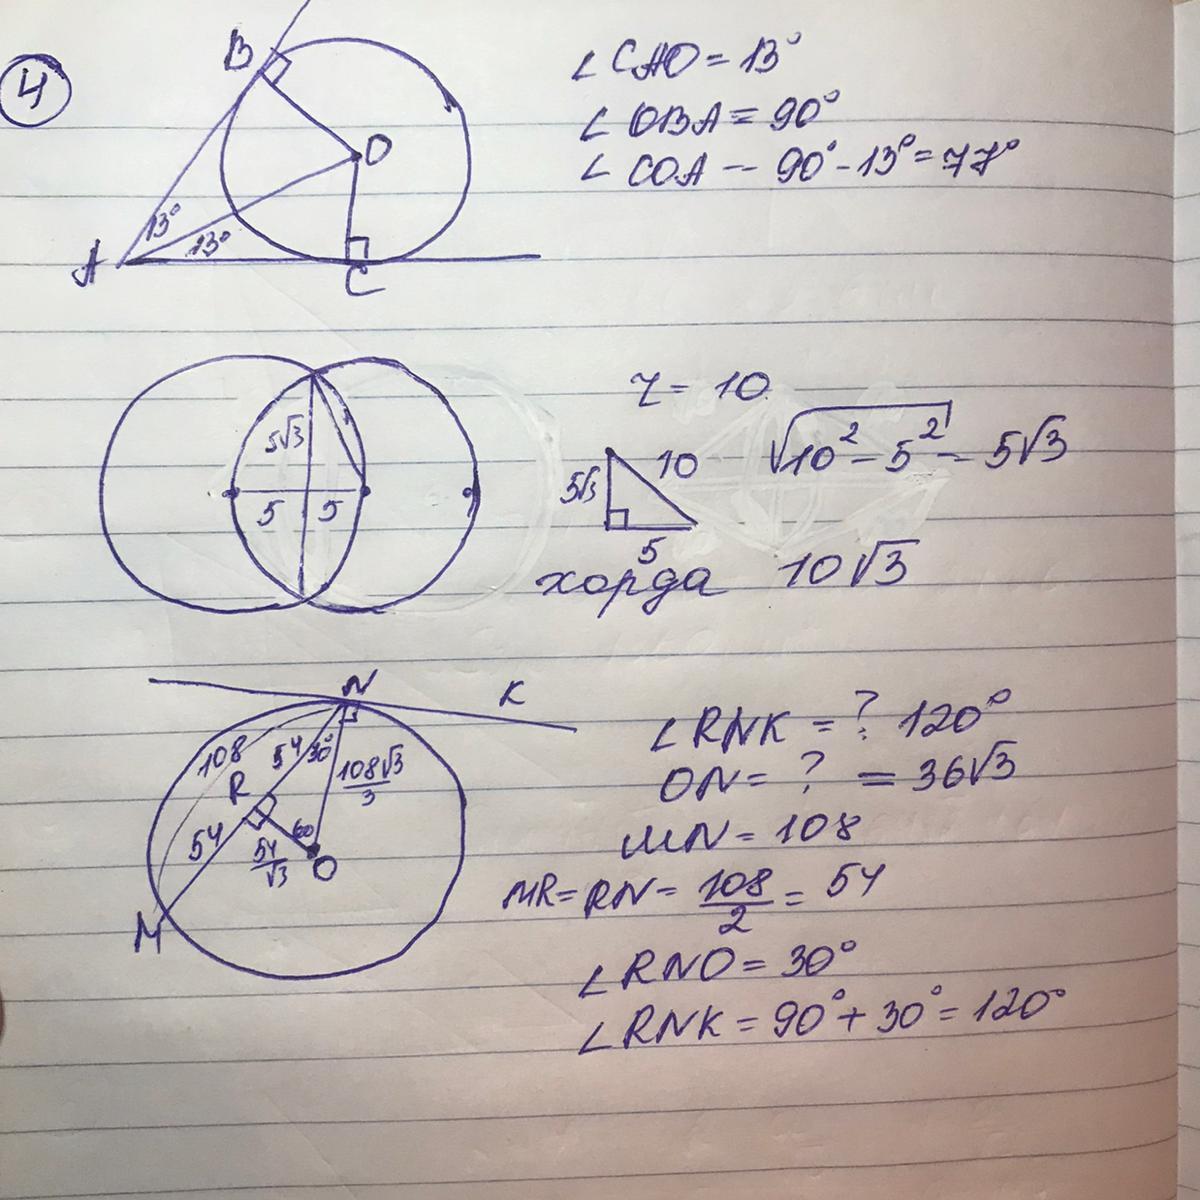 4
B
O
A
C
13°
13°
∠ CAO = 13°
∠ OBA = 90°
∠ COA — 90° - 13° = 77°
5√3
5
5
r = 10
5√3
10
5
√10² - 5² - 5√3
хорда 10√3
N
K
108
54
30°
108√3/3
R
54
60
54/√3
O
M
∠ RNK = ? 120°
ON = ? = 36√3
MN = 108
MR = RN = 108/2 = 54
∠ RNO = 30°
∠ RNK = 90° + 30° = 120°